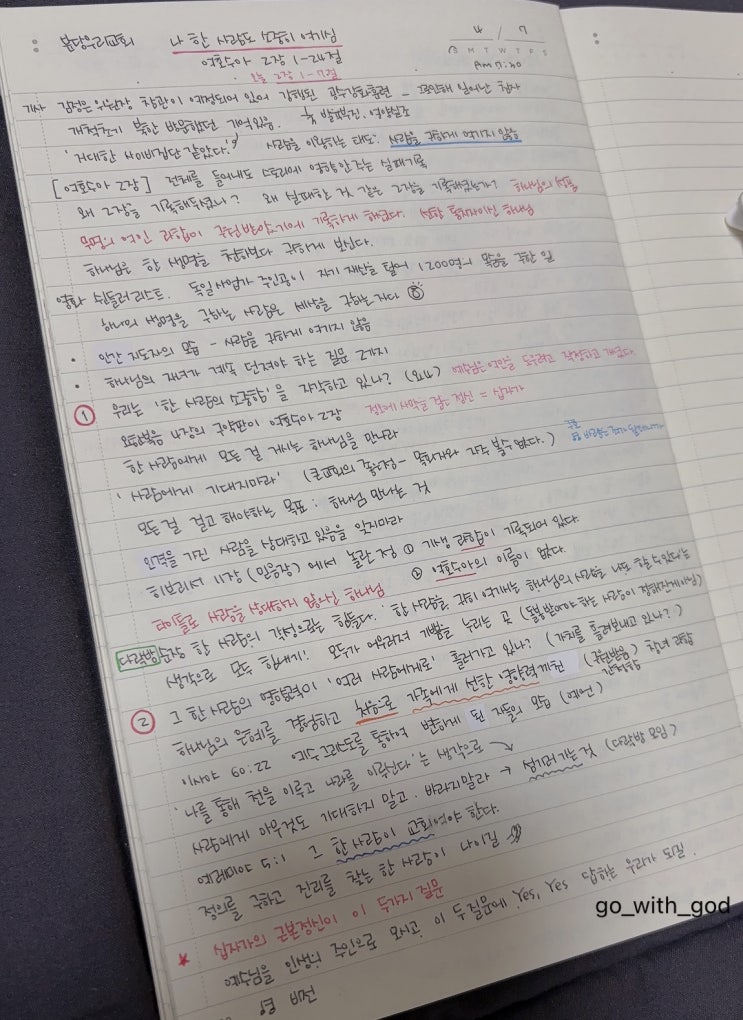 분당우리교회 나 한 사람도 소중히 여기심 4 / 7
여호수아 2장 1-24절 S M T W T F S
오늘 2장 1-7절 Am 7:40
기사 김정은 위원장 참관이 예정되어 있어 강행된 강수강화훈련 -
개척초기 북한 방문했던 기억있음. 영양실조
'거대한 사이비집단 같았다.' 사람을 이용하는 태도. 사람을 귀하게 여기지 않음
[여호수아 2장] 전체를 들어내도 스토리에 영향 안 주는 실패기록
왜 2장을 기록해두셨나? 왜 실패한 것 같은 2장을 기록해두셨는가? 하나님의 성품
무명의 여인 라합이 구원받았기에 기록하게 하셨다. 하나님
하나님은 한 생명을 천하보다 귀하게 보신다.
영화 쉰들러 리스트. 독일사업가 주인공이 자기 재산을 털어 1200명의 목숨을 구한 일
하나의 생명을 구하는 사람은 세상을 구하는 자다
• 인간 지도자의 모습 - 사람을 귀하게 여기지 않음
• 하나님의 자녀가 계속 던져야 하는 질문 2가지
① 우리는 '한 사람의 소중함'을 자각하고 있나? (요4) 예수님은 여인을 도우려고 작정하고 가셨다.
요한복음 4장의 구약판이 여호수아 2장 = 십자가
한 사람에게 모든 걸 거시는 하나님을 만나라
'사람에게 기대지마라' (큰교회의 - 목회자와 자주 볼수 없다.)
모든걸 걸고 해야하는 목표 : 하나님 만나는 것
인격을 가진 사람을 상대하고 있음을 잊지마라
히브리서 11장 (믿음장) 에서 놀란 점 ① 기생 라합이 기록되어 있다.
② 여호수아의 이름이 없다.
타이틀로 사람을 상대하지 않으신 하나님
다락방순장 한 사람의 각성으로는 힘들다. '한 사람을 귀히 여기는 하나님의 사역을 나도 할 수 있다'는
생각으로 모두 힘내기! 모두가 어우러져 기쁨을 누리는 곳 (돌봄받아야 하는 사람이 정해진게아님)
② 그 한 사람의 영향력이 '여러 사람에게로' 흘러가고 있나? (가치를 흘려보내고 있나?)
하나님의 은혜를 경험하고 처음으로 가족에게 선한 영향력 끼친 (구원받음) 라합
이사야 60:22 예수그리스도를 통하여 변하게 된 자들의 모습 (예언)
'나를 통해 천을 이루고 나라를 이루신다.'는 생각으로
사람에게 아무것도 기대하지 말고. 바라지말라 → 섬기러가는 것 (다락방 모임)
예레미야 5:1 그 한 사람이 교회여야 한다.
정의를 구하고 진리를 찾는 한 사람이 나이길
★ 십자가의 근본정신이 이 두가지 질문
예수님을 인생의 주인으로 모시고 이 두 질문에 Yes, Yes 답하는 우리가 되길.
go_with_god